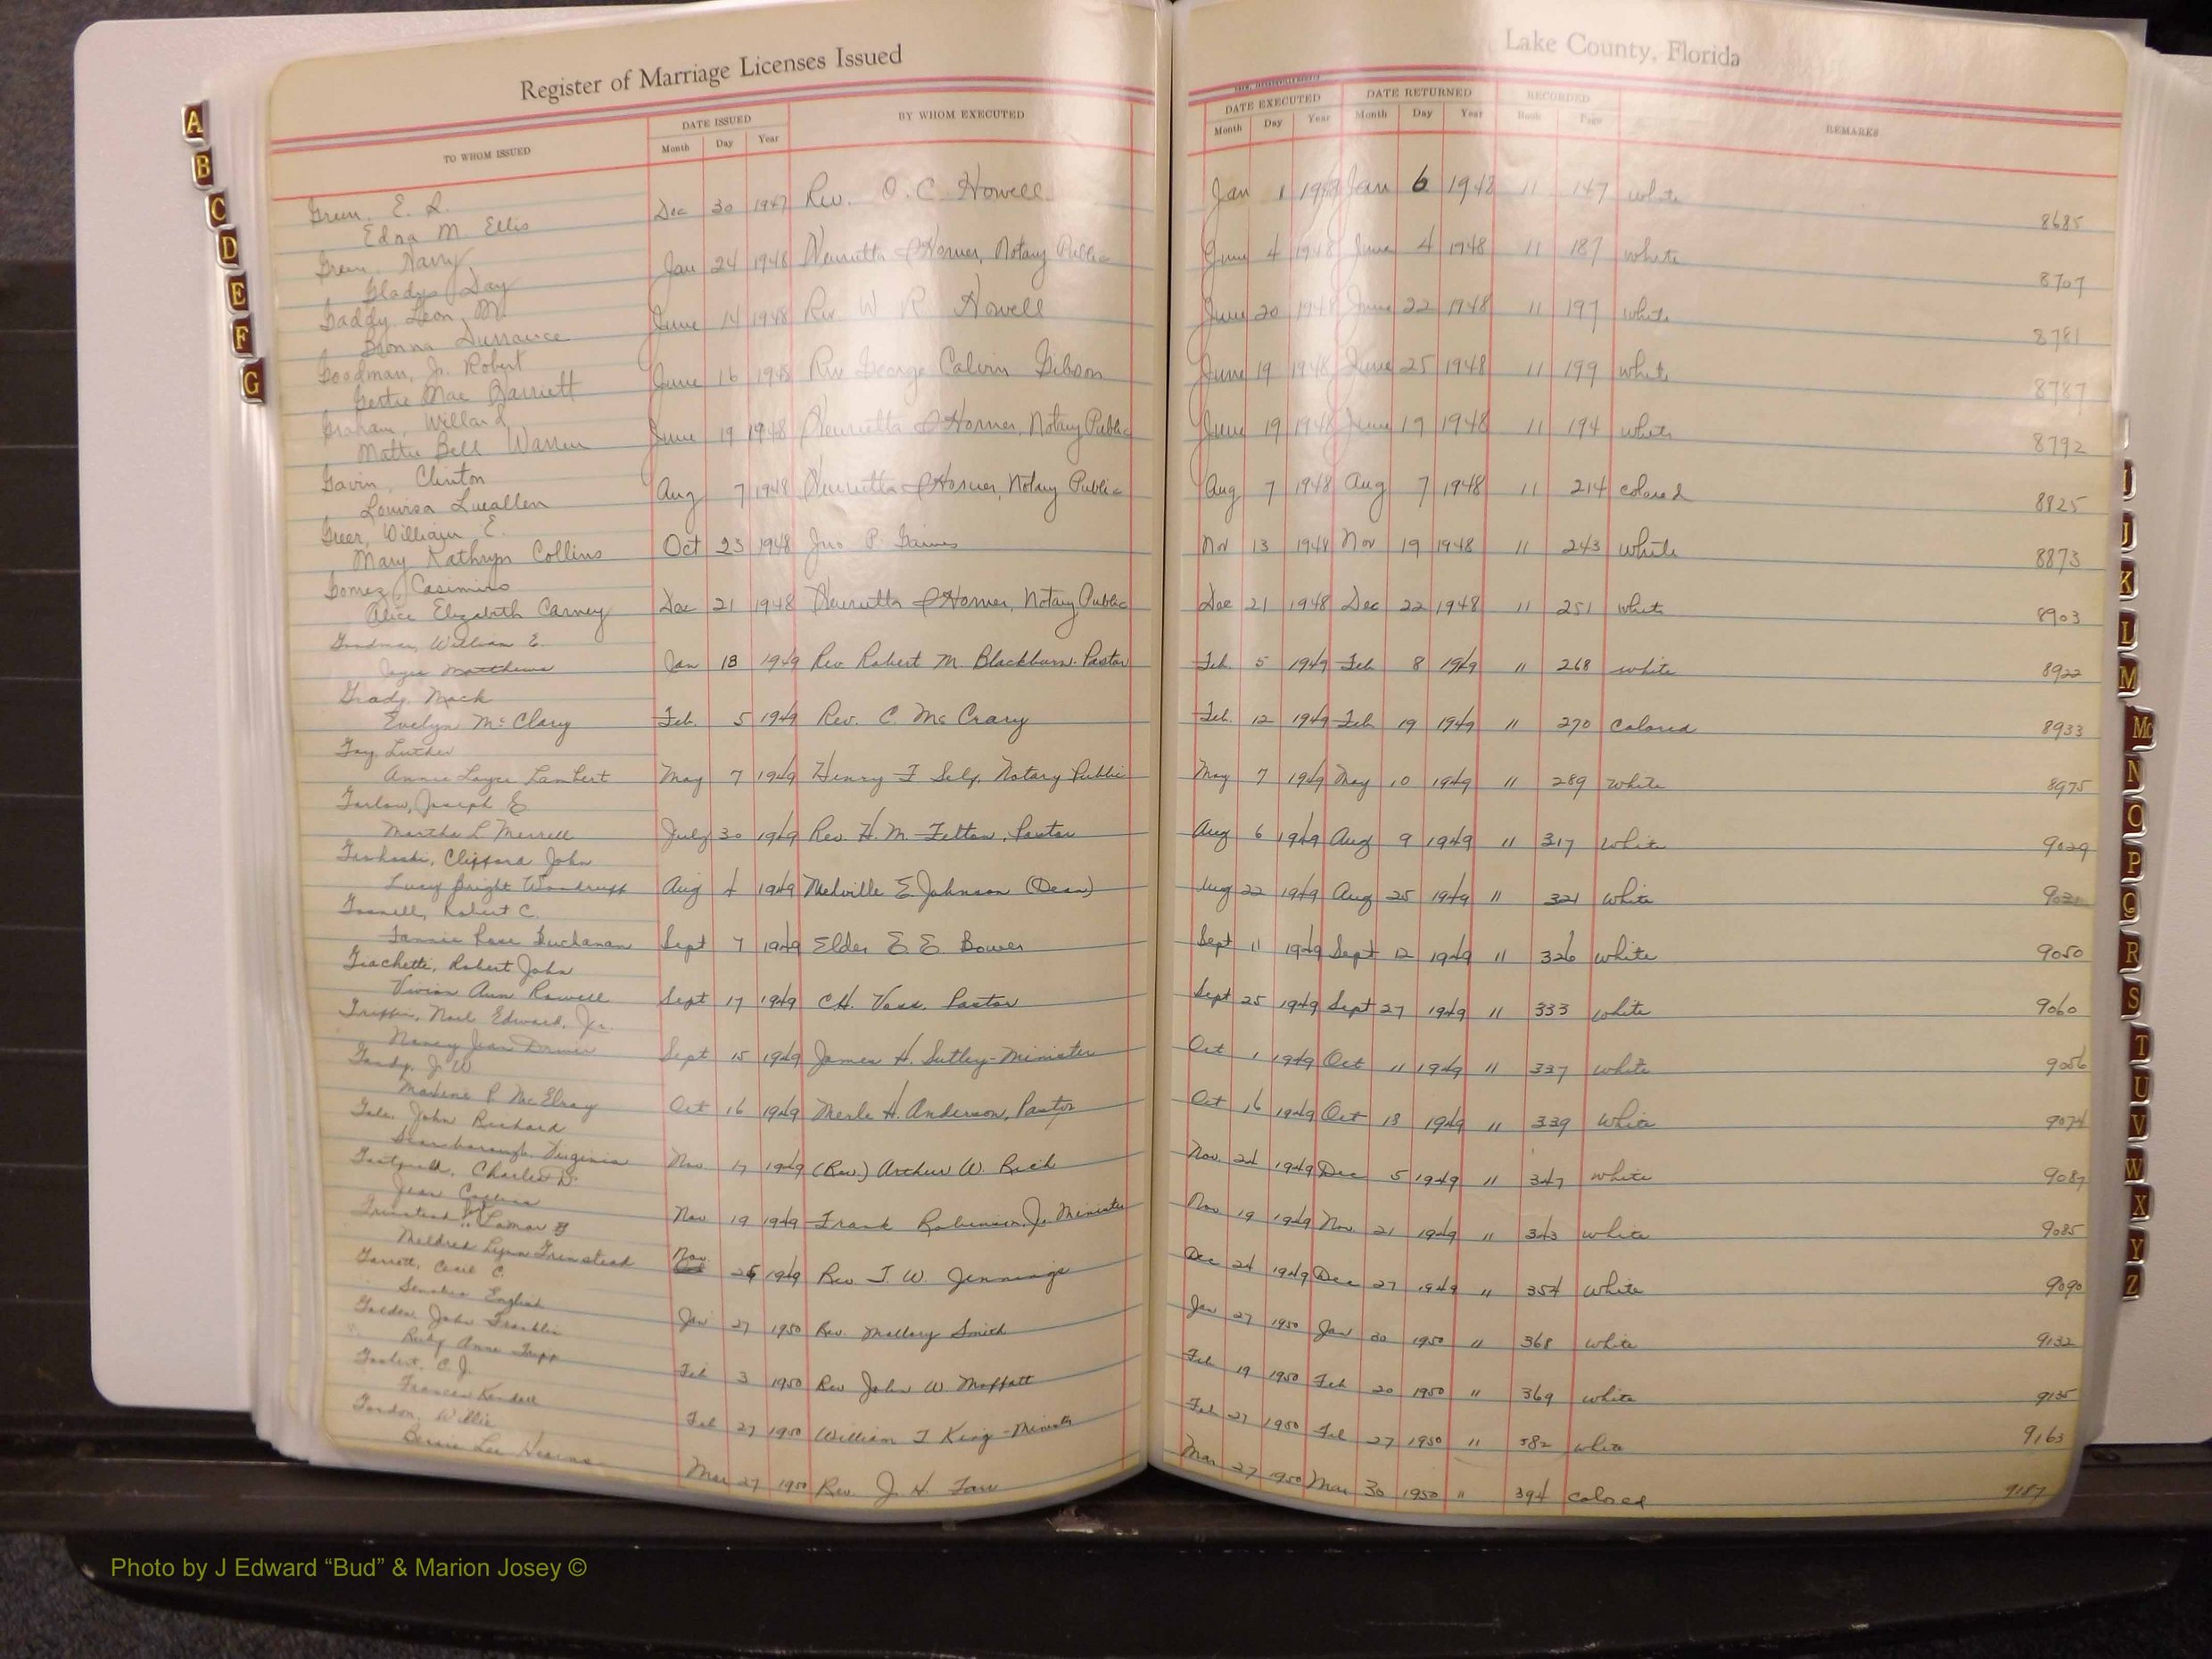 Register of Marriage Licenses Issued
Lake County, Florida
TO WHOM ISSUED
DATE ISSUED
Month Day Year
BY WHOM EXECUTED
DATE EXECUTED
Month Day Year
DATE RETURNED
Month Day Year
RECORDED
Book Page
REMARKS
A
B
C
D
E
F
G
Green, E.
Edna M. Ellis Dec 30 1947 Rev. O. C. Howell Jan 1 Jan 6 1948 11 147 white 8685
Green, Harry
Gladys Day Jan 24 1948 Henrietta Horner, Notary Public June 4 1948 June 4 1948 11 187 white 8707
Gaddy, Leon M.
Donna Durrance June 14 1948 Rev W R Howell June 20 1948 June 22 1948 11 197 white 8781
Goodman, Jr. Robert
Gertie Mae Barrett June 16 1948 Rev George Calvin Gibson June 19 1948 June 25 1948 11 199 white 8787
Graham, Willard
Mattie Bell Warren June 19 1948 Henrietta Horner, Notary Public June 19 1948 June 19 1948 11 194 white 8792
Gavin, Clinton
Louvisa Lucallen Aug 7 1948 Henrietta Horner, Notary Public Aug 7 1948 Aug 7 1948 11 214 colored 8825
Greer, William E.
Mary Kathryn Collins Oct 23 1948 Jno P. Gaines Nov 13 1948 Nov 19 1948 11 243 white 8873
Gomez, Casimiro
Alice Elizabeth Carney Dec 21 1948 Henrietta Horner, Notary Public Dec 21 1948 Dec 22 1948 11 251 white 8903
Goodman, William E.
Joyce Matthews Jan 18 1949 Rev Robert M. Blackburn-Pastor Feb. 5 1949 Feb 8 1949 " 268 white 8922
Grady, Mack
Evelyn McClary Feb. 5 1949 Rev. C. McCrary Feb. 12 1949 Feb 19 1949 " 270 Colored 8933
Gay, Luther
Annie Layce Lambert May 7 1949 Henry F Self, Notary Public May 7 1949 May 10 1949 " 289 White 8975
Garlow, Joseph E
Martha L. Merrell July 30 1949 Rev. H. M. Felton, Pastor Aug 6 1949 Aug 9 1949 " 317 White 9029
Clifford John
Lucy Bright Woodruff Aug 4 1949 Melville E. Johnson (Dean) Aug 22 1949 Aug 25 1949 " 321 White
Gosnell, Robert C.
Fannie Rose Buchanan Sept 7 1949 Elder E. E. Bower Sept 11 1949 Sept 12 1949 " 326 White 9050
Giachetti, Robert John
Vivian Ann Rowell Sept 17 1949 C.H. Vass, Pastor Sept 25 1949 Sept 27 1949 " 333 White 9060
Griffin, Noel Edward, Jr.
Nancy Jean Sept 15 1949 James H. Sutley-Minister Oct 1 1949 Oct 11 1949 " 337 White 9056
Gandy, J W
Maxine P. McElroy Oct 16 1949 Merle H. Anderson, Pastor Oct 16 1949 Oct 18 1949 " 339 White 9074
Gale, John Richard
Scarborough, Virginia Nov 17 1949 (Rev.) Arthur W. Rich Nov. 24 1949 Dec 5 1949 " 347 white 9087
Charles D.
Jean Collins Nov 19 1949 Frank Robinson, Jr. Minister Nov 19 1949 Nov. 21 1949 " 343 white 9085
Grinstead, Lamar
Mildred Lynn Grinstead Nov. 1949 Rev. J. W. Jennings Dec 24 1949 Dec 27 1949 " 354 White 9090
Garrett, Cecil C.
Senobia English Jan 27 1950 Rev. Mallory Smith Jan 27 1950 Jan 30 1950 " 368 White 9132
Golden, John Franklin
Ruby Anne Tripp Feb 3 1950 Rev John W Moffatt Feb 19 1950 Feb 20 1950 " 369 White 9135
C. J.
Frances Kendall Feb 27 1950 William T King-Minister Feb 27 1950 Feb 27 1950 " 382 white 9163
Gordon, Willie
Bessie Lee Mar 27 1950 Rev. J. H. Mar 27 1950 Mar 30 1950 " 394 Colored 9187
I
J
K
L
M
Mc
N
O
P
Q
R
S
T
U
V
W
X
Y
Z
Photo by J Edward “Bud” & Marion Josey ©